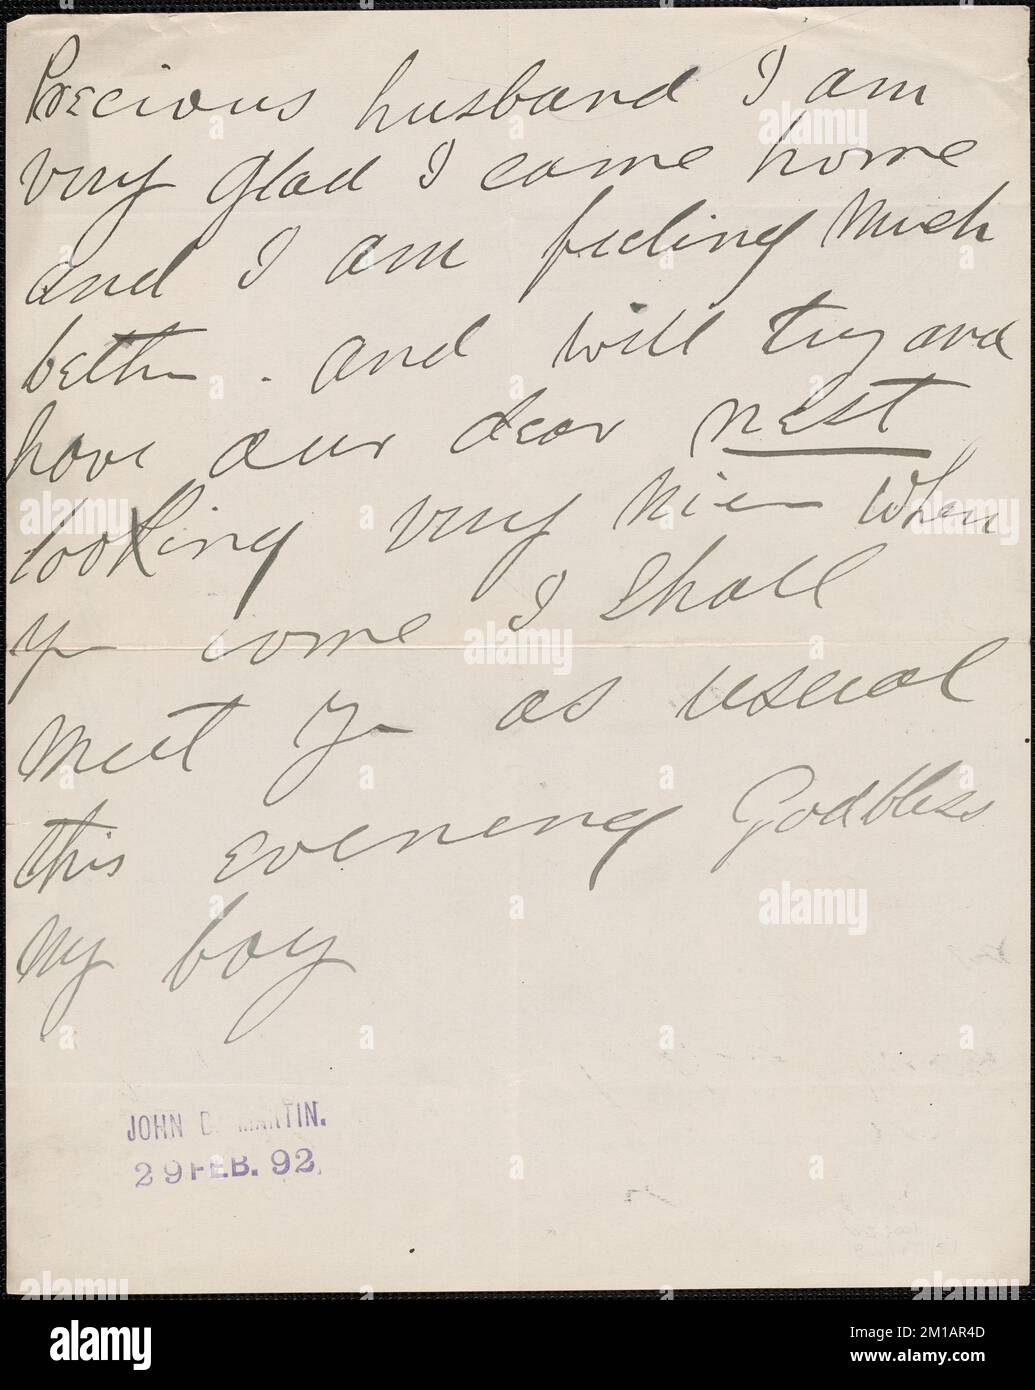 Precious husband I am
very glad I came home
and I am feeling much
better. and will try and
have our dear nest
looking very nice when
you come I shall
meet you as usual
this evening God bless
my boy
JOHN D. MARTIN.
29 FEB. 92.
alamy
Image ID: 2M1AR4D
www.alamy.com